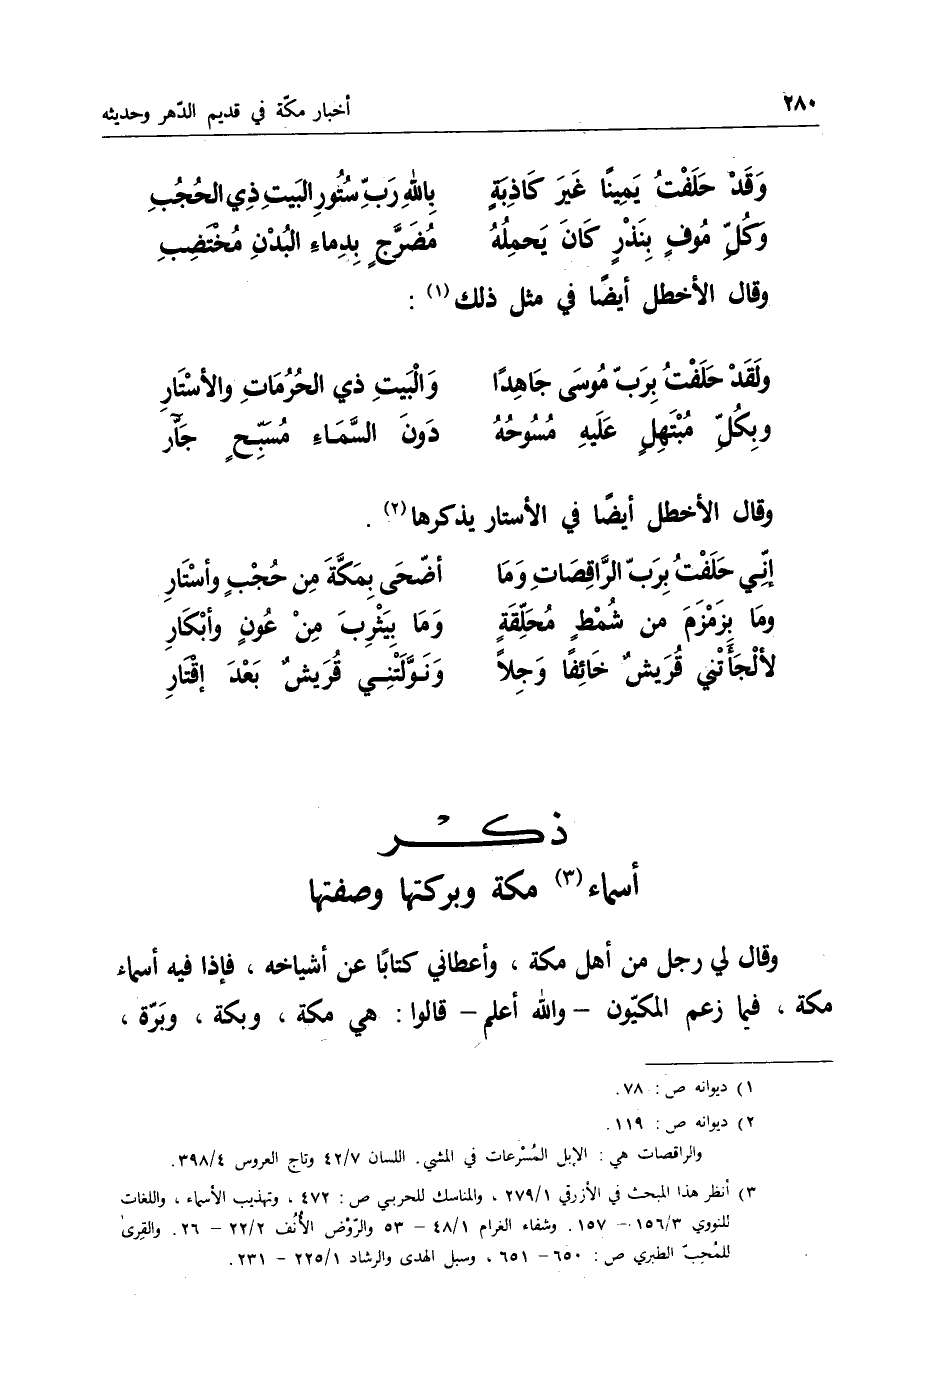 ٢٨٠ أخبار مكّة في قديم الدّهر وحديثه
وَقَدْ حَلَفْتُ يَمِينًا غَيرَ كَاذِبَةٍ بِاللهِ رَبِّ سُتُورِ البَيتِ ذِي الحُجُبِ
وَكُلِّ مُوفٍ بِنَذْرٍ كَانَ يَحمِلُهُ مُضَرَّجٍ بِدِماءِ البُدْنِ مُخْتَضِبِ
وقال الأخطل أيضًا في مثل ذلك (١) :
ولَقَدْ حَلَفْتُ بِرَبِّ مُوسَى جَاهِدًا وَالْبَيتِ ذي الحُرُمَاتِ والأسْتَارِ
وبِكُلِّ مُبْتَهِلٍ عَلَيهِ مُسُوحُهُ دَونَ السَّمَاءِ مُسَبِّحٍ جَآَّر
وقال الأخطل أيضًا في الأستار يذكرها (٢) .
إنِّي حَلَفْتُ بِرَبِّ الرَّاقِصَاتِ وَمَا أضْحَى بِمَكَّةَ مِن حُجْبٍ وأسْتَارِ
ومَا بِزَمْزَمَ من شُمْطٍ مُحَلِّقَةٍ وَمَا بِيَثْرِبَ مِنْ عُونٍ وأبْكَارِ
لألْجَأَتْنِي قُرَيشٌ خَائِفًا وَجِلاً وَنَوَّلَتْنِي قُرَيشٌ بَعْدَ إقْتَارِ
ذكر
أسماء (٣) مكة وبركتها وصفتها
وقال لي رجل من أهل مكة ، وأعطاني كتابًا عن أشياخه ، فإذا فيه أسماء
مكة ، فيما زعم المكيّون – والله أعلم – قالوا : هي مكة ، وبكة ، وبَرّة ،
١) ديوانه ص : ٧٨ .
٢) ديوانه ص : ١١٩ .
والراقصات هي : الإبل المُسْرعات في المشي . اللسان ٤٢/٧ وتاج العروس ٣٩٨/٤ .
٣) أنظر هذا المبحث في الأزرقي ٢٧٩/١ ، والمناسك للحربي ص : ٤٧٢ ، وتهذيب الأسماء ، واللغات
للنووي ١٥٦/٣ – ١٥٧ . وشفاء الغرام ٤٨/١ – ٥٣ والرّوْض الأُنُف ٢٢/٢ – ٢٦ . والقِرىٰ
للمُحبّ الطبري ص : ٦٥٠ – ٦٥١ ، وسبل الهدى والرشاد ٢٢٥/١ – ٢٣١ .